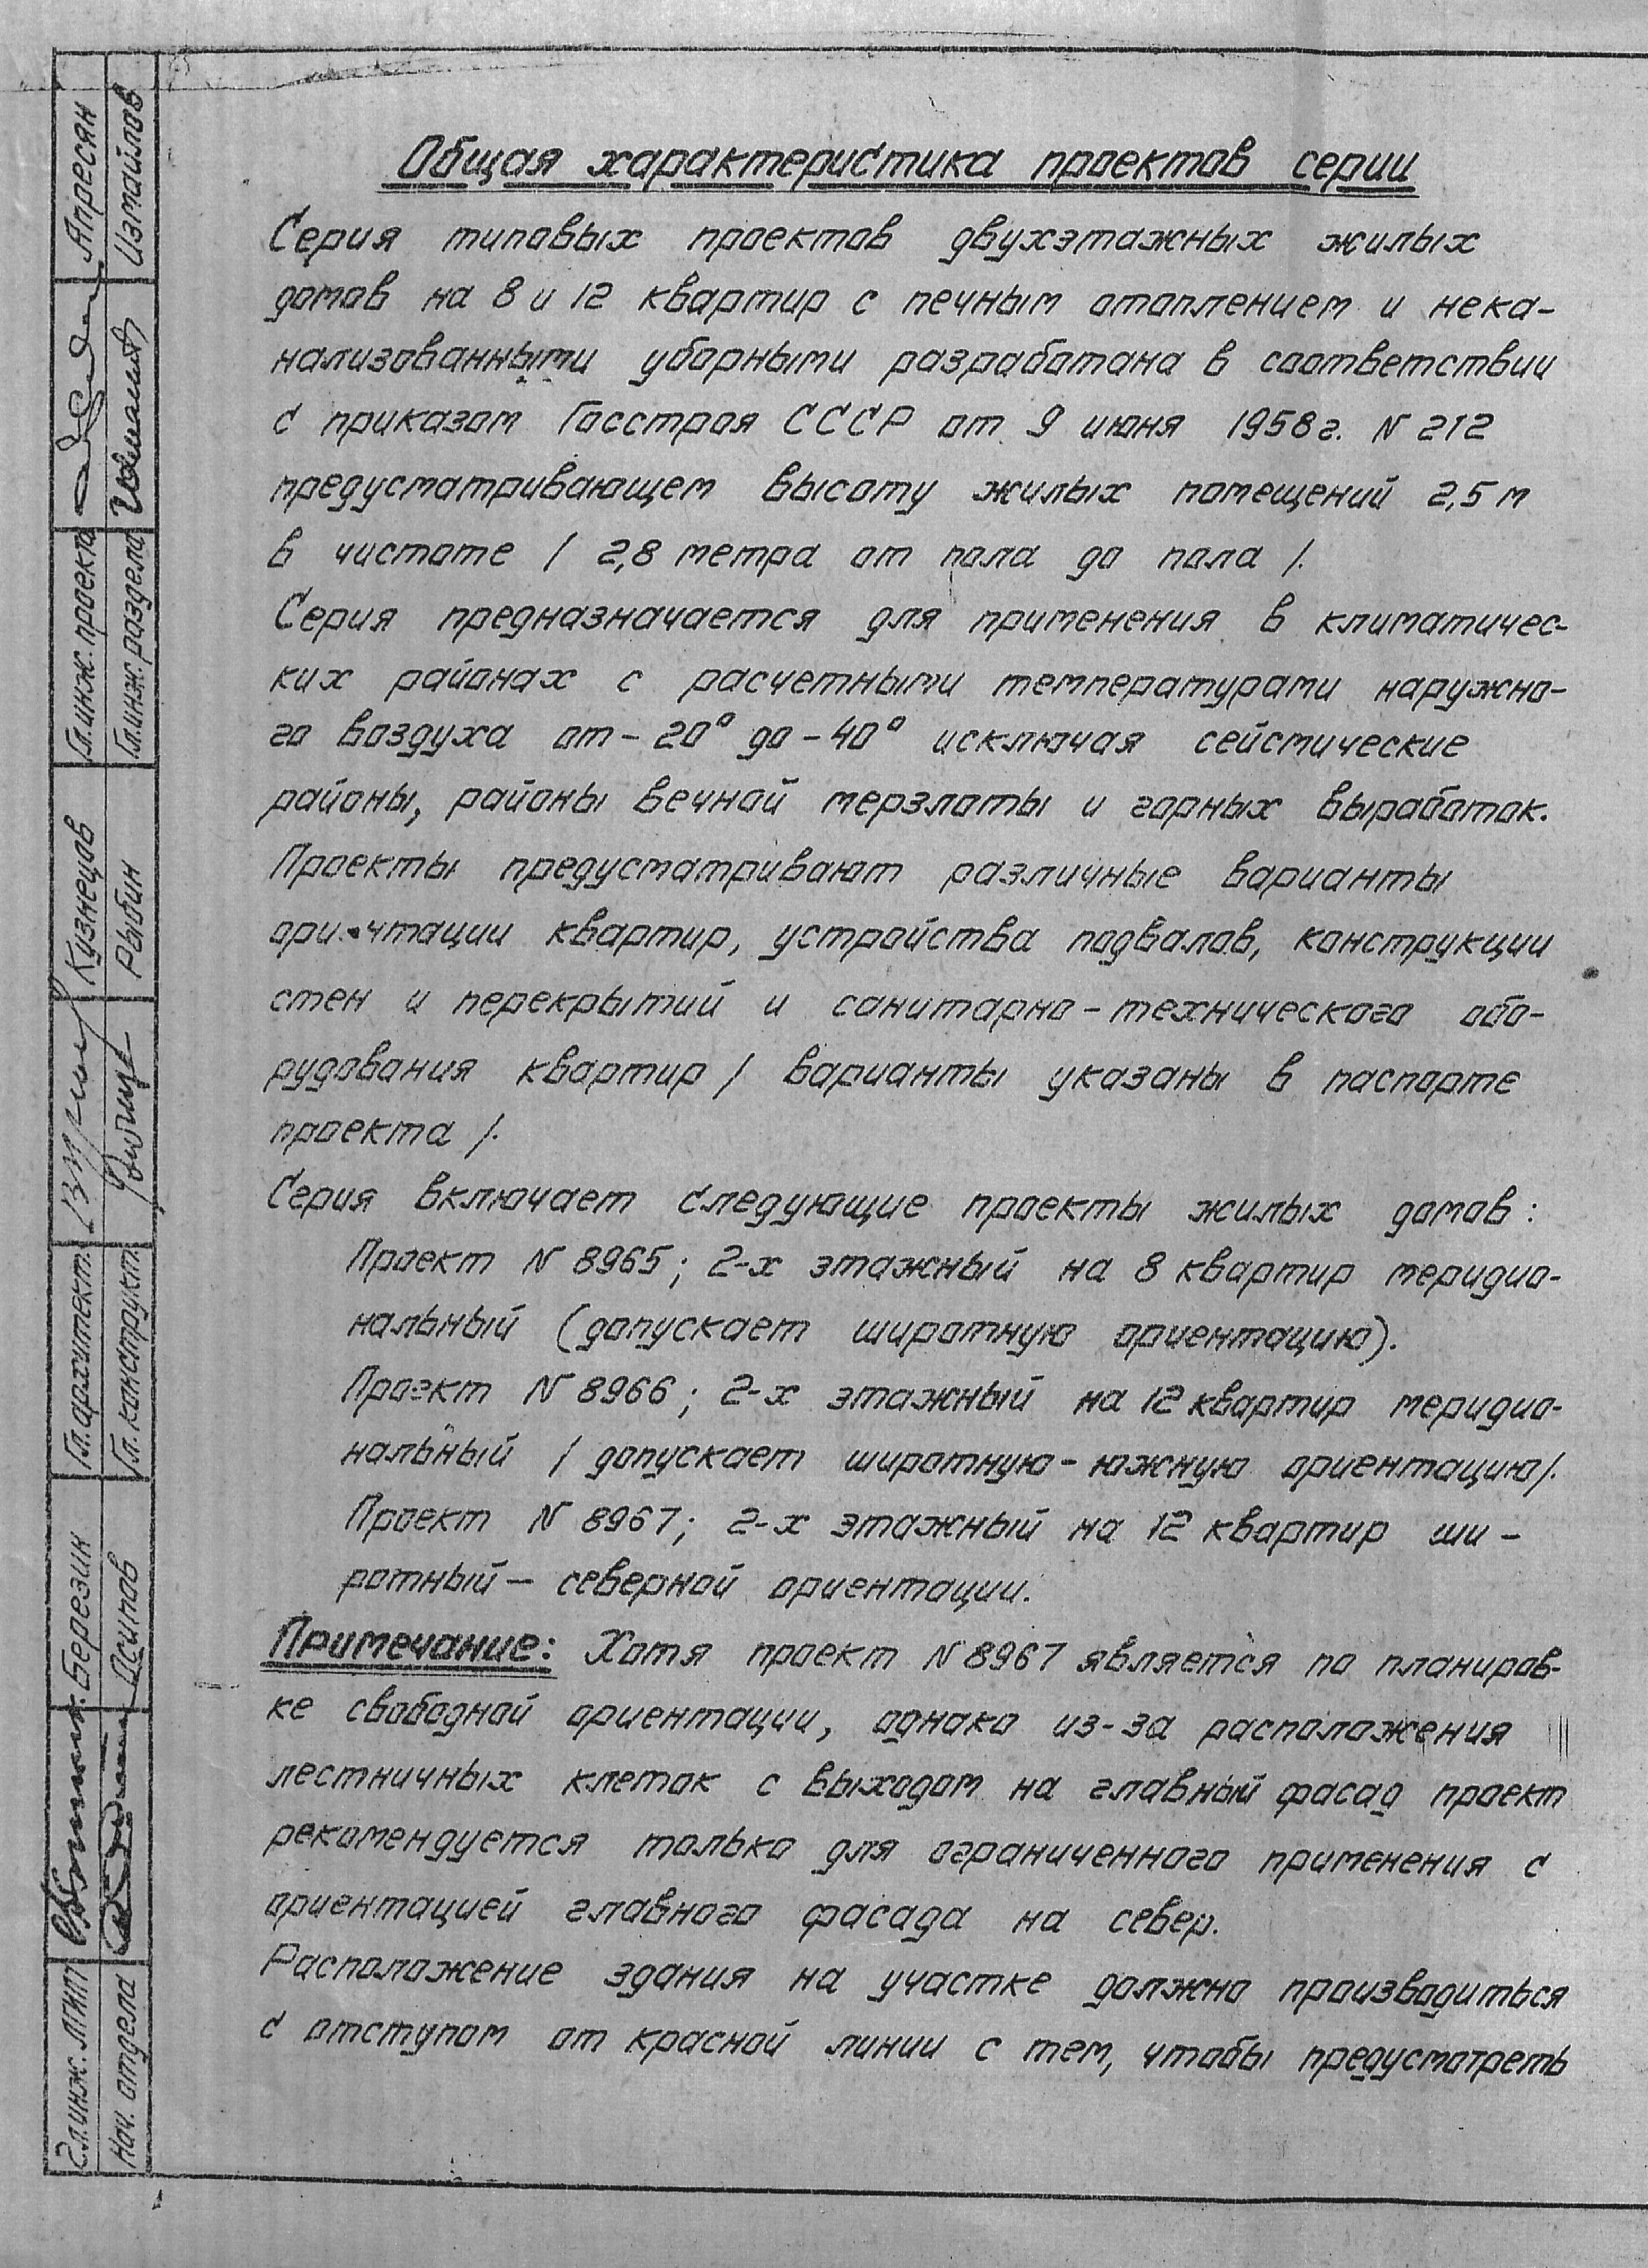 Общая характеристика проектов серии
Серия типовых проектов двухэтажных жилых
домов на 8 и 12 квартир с печным отоплением и нека-
нализованными уборными разработана в соответствии
с приказом Госстроя СССР от 9 июня 1958 г. N 212
предусматривающем высоту жилых помещений 2,5 м
в чистоте / 2,8 метра от пола до пола /.
Серия предназначается для применения в климатичес-
ких районах с расчетными температурами наружно-
го воздуха от - 20° до - 40° исключая сейсмические
районы, районы вечной мерзлоты и горных выработок.
Проекты предусматривают различные варианты
квартир, устройства подвалов, конструкции
стен и перекрытий и санитарно-технического обо-
рудования квартир / варианты указаны в паспорте
проекта /.
Серия включает следующие проекты жилых домов:
Проект N 8965; 2-х этажный на 8 квартир меридио-
нальный (допускает широтную ориентацию).
Проект N 8966; 2-х этажный на 12 квартир меридио-
нальный / допускает широтную-южную ориентацию/.
Проект N 8967; 2-х этажный на 12 квартир ши-
ротный - северной ориентации.
Примечание: Хотя проект N 8967 является по планиров-
ке свободной ориентации, однако из-за расположения
лестничных клеток с выходом на главный фасад проект
рекомендуется только для ограниченного применения с
ориентацией главного фасада на север.
Расположение здания на участке должно производиться
с отступом от красной линии с тем, чтобы предусмотреть
Гл. инж. ЛГИП Березик
Нач. отдела Осипов
Гл. архитект. Кузнецов
Гл. конструкт. Рыбин
Гл. инж. проекта Апресян
Гл. инж. раздела Измайлов